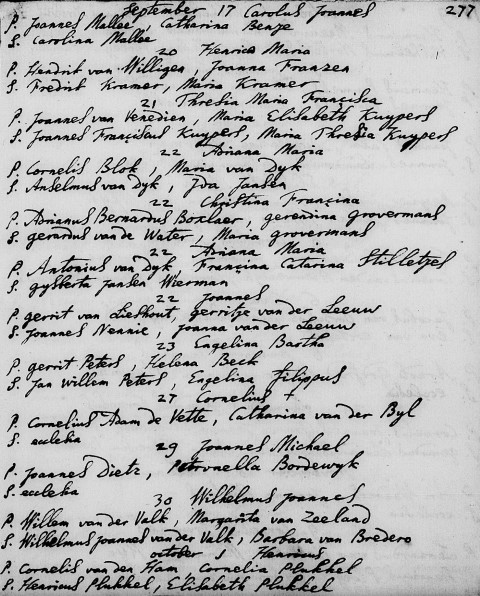 September 17 Carolus Joannes 277
P. Joannes Mallée, Catharina Benze
S. Carolina Mallée
20 Henrica Maria
P. Hendrik van Willigen, Joanna Franzen
S. Fredrik Kramer, Maria Kramer
21 Thresia Maria Francisca
P. Joannes van Venedien, Maria Elisabeth Kuypers
S. Joannes Franciscus Kuypers, Maria Thresia Kuypers
22 Adriana Maria
P. Cornelis Blok, Maria van Dyk
S. Anselmus van Dyk, Ida Jansen
22 Christina Francina
P. Adrianus Bernardus Boxlaer, gerendina grovermans
S. gerardus van de Water, Maria grovermans
22 Adriana Maria
P. Antonius van Dyk, Francina Catarina Stilletzes
S. gysberta Jansen Wierman
22 Joannes
P. gerrit van Lieshout, gerritje van der Leeuw
S. Joannes Nennie, Joanna van der Leeuw
23 Engelina Bartha
P. gerrit Peters, Helena Beck
S. Jan Willem Peters, Engelina filippus
27 Cornelius +
P. Cornelius Adam de Vette, Catharina van der Byl
S. ecclesia
29 Joannes Michael
P. Joannes Dietz, Petronella Bordewyk
S. ecclesia
30 Wilhelmus Joannes
P. Willem van der Valk, Margarita van Zeeland
S. Wilhelmus Joannes van der Valk, Barbara van Bredero
october 1 Henricus
P. Cornelis van den Ham Cornelia Plukkel
S. Henricus Plukkel, Elisabeth Plukkel